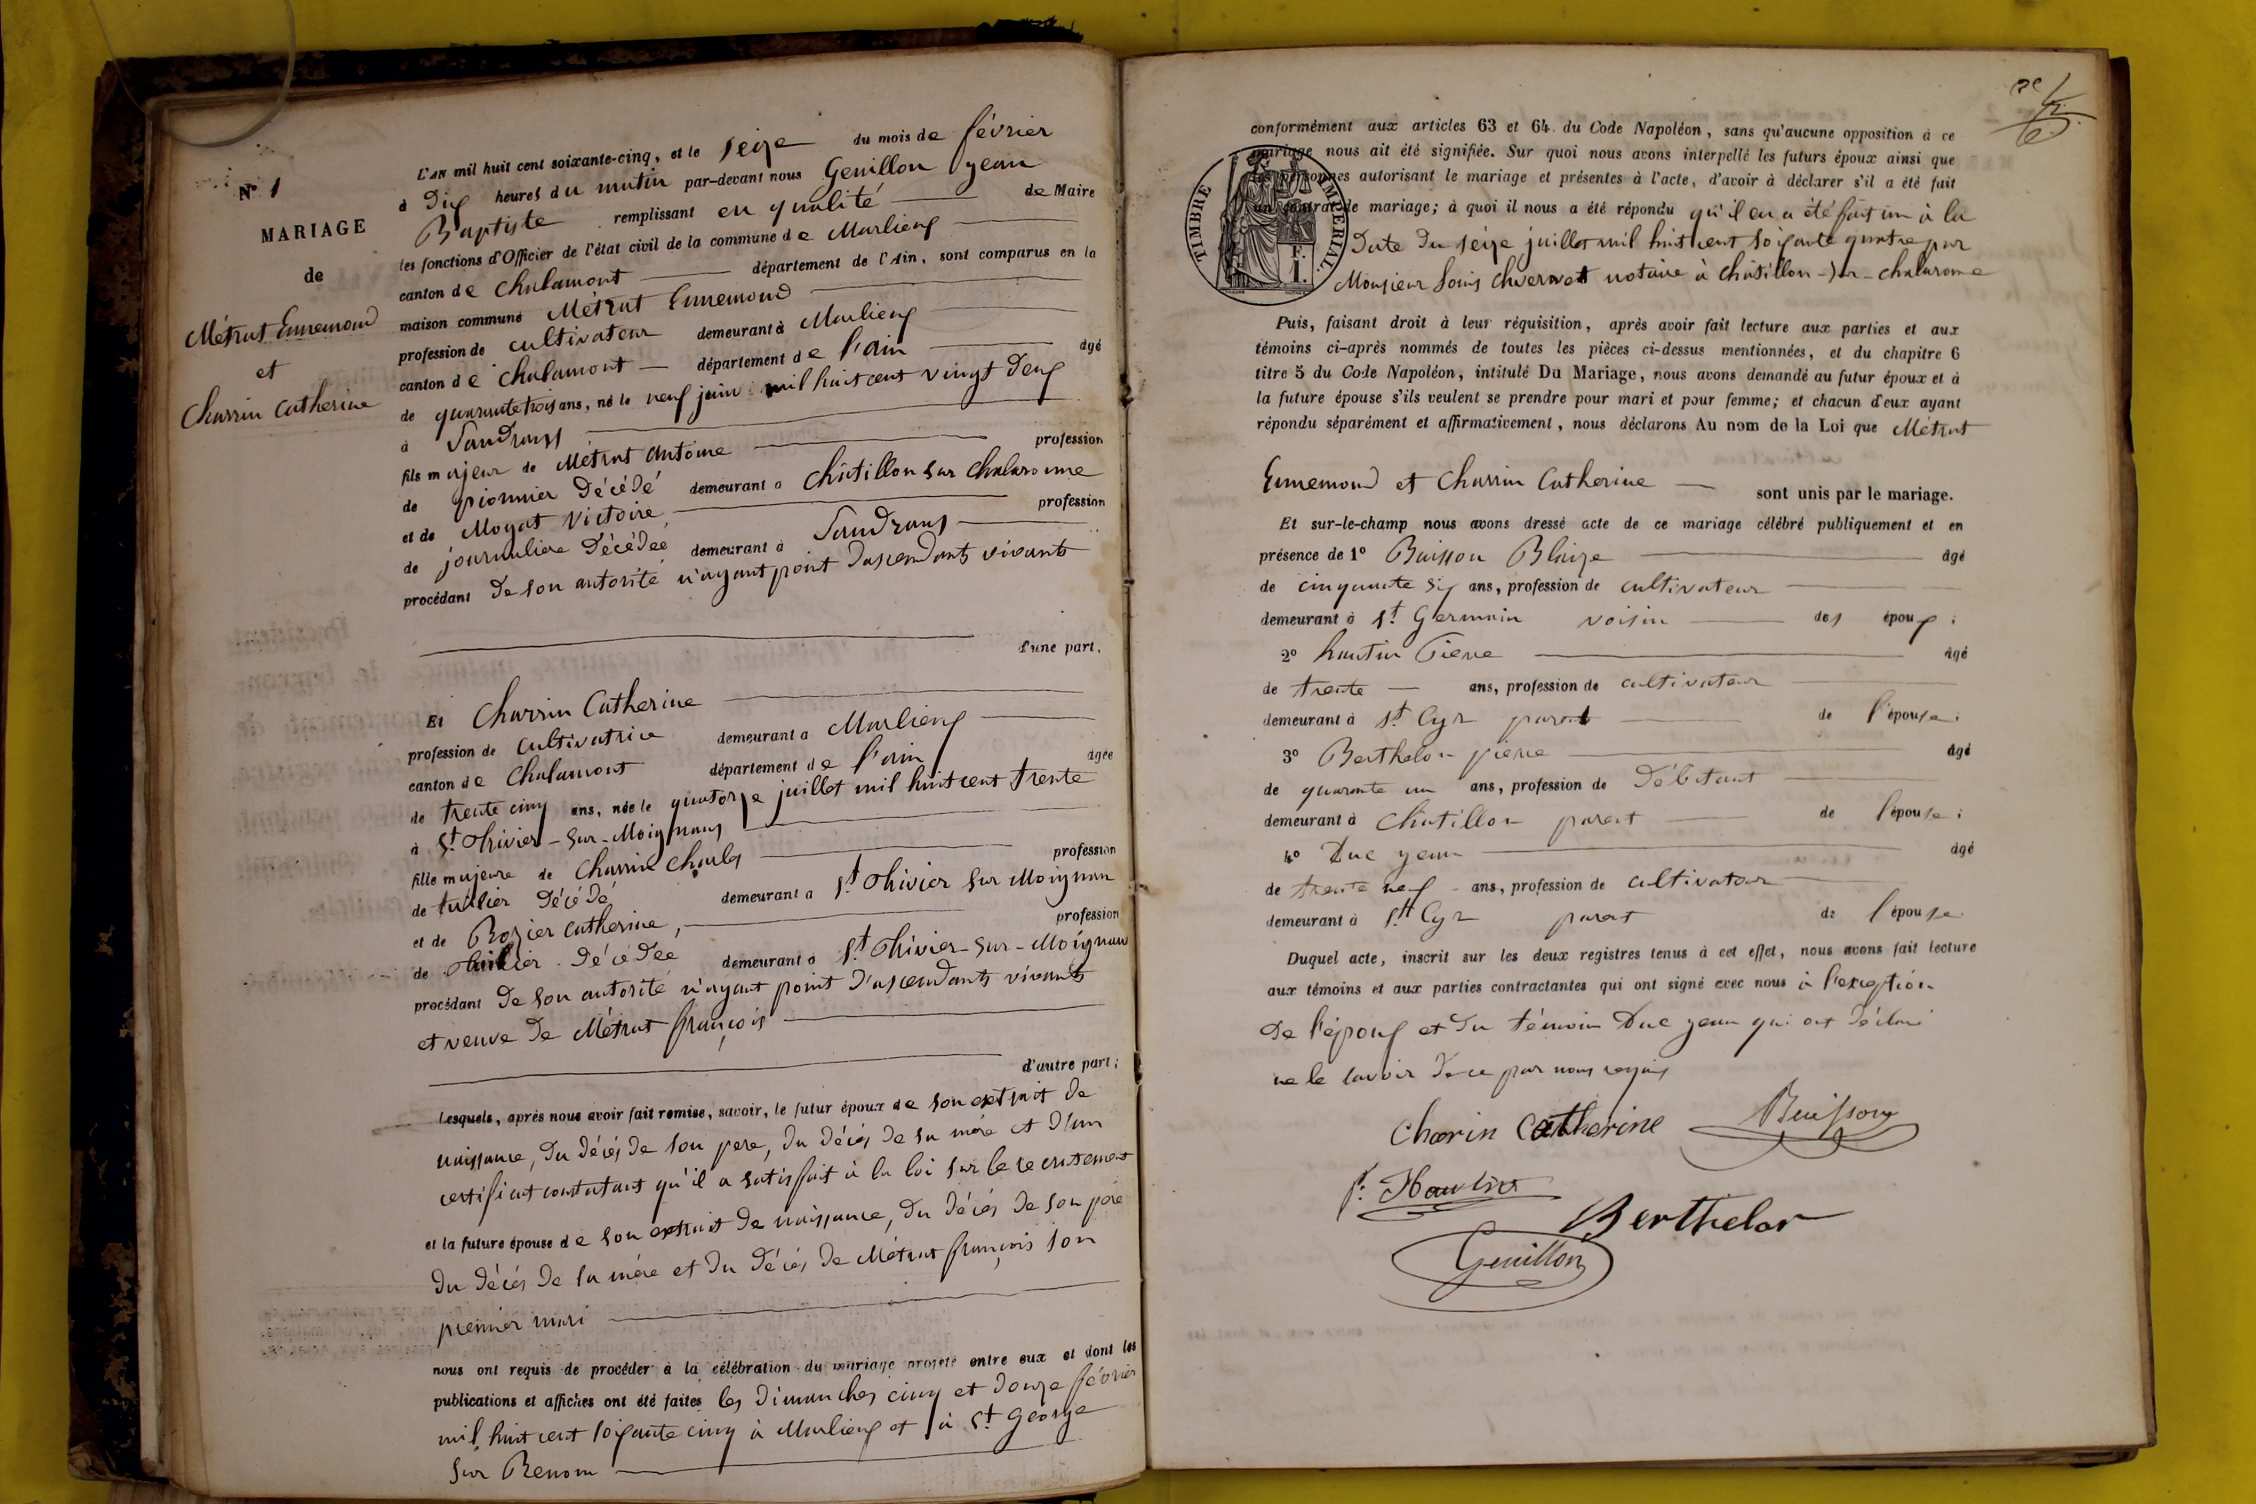 N° 1
MARIAGE
de
Métrat Ennemond
et
Charrin Catherine
L'AN mil huit cent soixante-cinq, et le seize du mois de février
à Dix heures du matin par-devant nous Genillon Jean
Baptiste remplissant en qualité de Maire
les fonctions d'Officier de l'état civil de la commune de Marlieux
canton de Chalamont département de l'Ain, sont comparus en la
maison commune Métrat Ennemond
profession de cultivateur demeurant à Marlieux
canton de Chalamont département de l'ain âgé
de quarante trois ans, né le neuf juin mil huit cent vingt deux
à Sandrans
fils majeur de Métrat Antoine profession
de pionnier décédé demeurant à Châtillon sur Chalaronne
et de Moyat Victoire, profession
de journalière décédée demeurant à Sandrans
procédant de son autorité n'ayant point d'ascendants vivants
d'une part,
Et Charrin Catherine
profession de cultivatrice demeurant à Marlieux
canton de Chalamont département de l'ain âgée
de trente cinq ans, née le quatorze juillet mil huit cent trente
à St Thivier-sur-Moignans
fille majeure de Charrin Charles profession
de tuilier décédé demeurant à St Thivier sur Moignan
et de Rozier Catherine, profession
de décédée demeurant à St Thivier-sur-Moignan
procédant de son autorité n'ayant point d'ascendants vivants
et veuve de Métrat françois
d'autre part;
Lesquels, après nous avoir fait remise, savoir, le futur époux de son extrait de
naissance, du décès de son pere, du décès de sa mère et d'un
certificat constatant qu'il a satisfait à la loi sur le recrutement
et la future épouse de son extrait de naissance, du décès de son père
du décès de sa mère et du décès de Métrat françois son
premier mari
nous ont requis de procéder à la célébration du mariage projeté entre eux et dont les
publications et affiches ont été faites les dimanches cinq et douze février
mil huit cent soixante cinq à Marlieux et à St George
sur Renom
conformément aux articles 63 et 64 du Code Napoléon, sans qu'aucune opposition à ce
mariage nous ait été signifiée. Sur quoi nous avons interpellé les futurs époux ainsi que
les personnes autorisant le mariage et présentes à l'acte, d'avoir à déclarer s'il a été fait
un contrat de mariage; à quoi il nous a été répondu qu'il en a été fait un à la
TIMBRE IMPERIAL
1 F.
Date du seize juillet mil huit cent soixante quatre par
Monsieur Louis notaire à Châtillon-sur-chalaronne
Puis, faisant droit à leur réquisition, après avoir fait lecture aux parties et aux
témoins ci-après nommés de toutes les pièces ci-dessus mentionnées, et du chapitre 6
titre 5 du Code Napoléon, intitulé Du Mariage, nous avons demandé au futur époux et à
la future épouse s'ils veulent se prendre pour mari et pour femme; et chacun d'eux ayant
répondu séparément et affirmativement, nous déclarons Au nom de la Loi que Métrat
Ennemond et Charrin Catherine sont unis par le mariage.
Et sur-le-champ nous avons dressé acte de ce mariage célébré publiquement et en
présence de 1° Buisson Blaize âgé
de cinquante six ans, profession de cultivateur
demeurant à St Germain voisin des époux;
2° hautin Pierre âgé
de trente ans, profession de cultivateur
demeurant à St Cyr parent de l'épouse;
3° Berthelon pierre âgé
de quarante un ans, profession de Débitant
demeurant à Châtillon parent de l'épouse;
4° Duc Jean âgé
de trente neuf ans, profession de cultivateur
demeurant à St Cyr parent de l'épouse
Duquel acte, inscrit sur les deux registres tenus à cet effet, nous avons fait lecture
aux témoins et aux parties contractantes qui ont signé avec nous à l'exception
de l'époux et du témoin Duc Jean qui ont déclaré
ne le savoir de ce par nous requis
Charin Catherine Buisson
Berthelon
Genillon